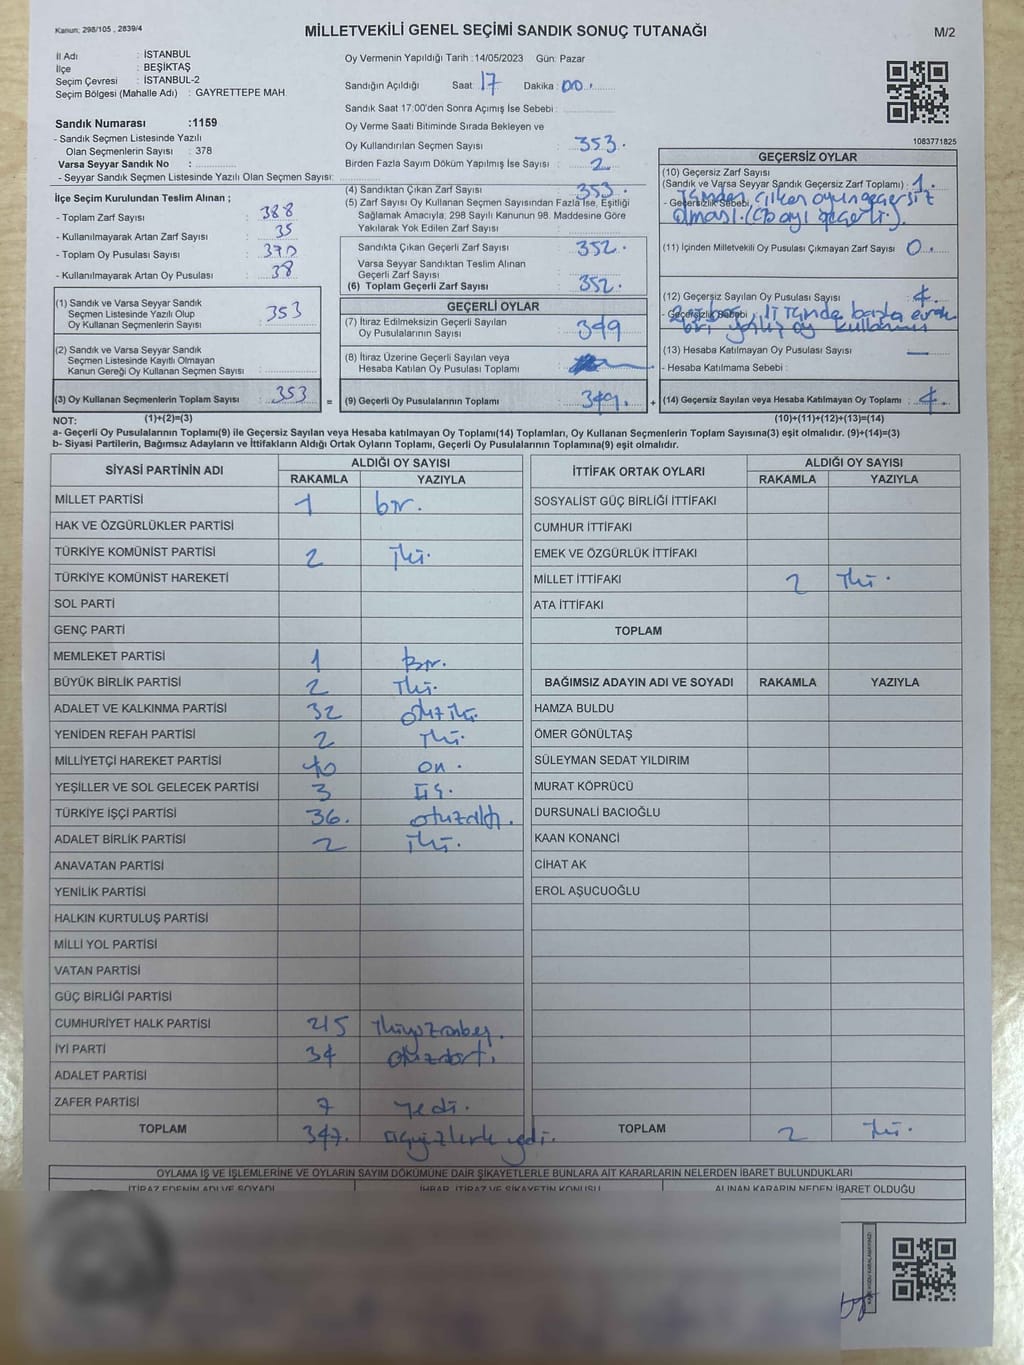 Kanun: 298/105 , 2839/4
MİLLETVEKİLİ GENEL SEÇİMİ SANDIK SONUÇ TUTANAĞI
M/2
İl Adı : İSTANBUL
İlçe : BEŞİKTAŞ
Seçim Çevresi : İSTANBUL-2
Seçim Bölgesi (Mahalle Adı) : GAYRETTEPE MAH.
Sandık Numarası :1159
- Sandık Seçmen Listesinde Yazılı
Olan Seçmenlerin Sayısı : 378
Varsa Seyyar Sandık No :
- Seyyar Sandık Seçmen Listesinde Yazılı Olan Seçmen Sayısı:
İlçe Seçim Kurulundan Teslim Alınan ;
- Toplam Zarf Sayısı : 388
- Kullanılmayarak Artan Zarf Sayısı : 35
- Toplam Oy Pusulası Sayısı : 370
- Kullanılmayarak Artan Oy Pusulası : 38
(1) Sandık ve Varsa Seyyar Sandık
Seçmen Listesinde Yazılı Olup
Oy Kullanan Seçmenlerin Sayısı : 353
(2) Sandık ve Varsa Seyyar Sandık
Seçmen Listesinde Kayıtlı Olmayan
Kanun Gereği Oy Kullanan Seçmen Sayısı :
(3) Oy Kullanan Seçmenlerin Toplam Sayısı : 353
(1)+(2)=(3)
Oy Vermenin Yapıldığı Tarih : 14/05/2023 Gün: Pazar
Sandığın Açıldığı Saat : 17 Dakika : 00
Sandık Saat 17:00'den Sonra Açımış İse Sebebi :
Oy Verme Saati Bitiminde Sırada Bekleyen ve
Oy Kullandırılan Seçmen Sayısı : 353.
Birden Fazla Sayım Döküm Yapılmış İse Sayısı : 2
(4) Sandıktan Çıkan Zarf Sayısı : 353.
(5) Zarf Sayısı Oy Kullanan Seçmen Sayısından Fazla İse, Eşitliği
Sağlamak Amacıyla; 298 Sayılı Kanunun 98. Maddesine Göre
Yakılarak Yok Edilen Zarf Sayısı :
Sandıkta Çıkan Geçerli Zarf Sayısı : 352.
Varsa Seyyar Sandıktan Teslim Alınan
Geçerli Zarf Sayısı :
(6) Toplam Geçerli Zarf Sayısı : 352.
GEÇERLİ OYLAR
(7) İtiraz Edilmeksizin Geçerli Sayılan
Oy Pusulalarının Sayısı : 349
(8) İtiraz Üzerine Geçerli Sayılan veya
Hesaba Katılan Oy Pusulası Toplamı :
= (9) Geçerli Oy Pusulalarının Toplamı : 349. +
1083771825
GEÇERSİZ OYLAR
(10) Geçersiz Zarf Sayısı
(Sandık ve Varsa Seyyar Sandık Geçersiz Zarf Toplamı) : 1.
- Geçersizlik Sebebi içinden çıkan oyun geçersiz
olması. (CB oyı geçerli).
(11) İçinden Milletvekili Oy Pusulası Çıkmayan Zarf Sayısı 0
(12) Geçersiz Sayılan Oy Pusulası Sayısı : 4.
- Geçersizlik Sebebi
(13) Hesaba Katılmayan Oy Pusulası Sayısı : —
- Hesaba Katılmama Sebebi :
(14) Geçersiz Sayılan veya Hesaba Katılmayan Oy Toplamı : 4.
(10)+(11)+(12)+(13)=(14)
NOT:
a- Geçerli Oy Pusulalarının Toplamı(9) ile Geçersiz Sayılan veya Hesaba katılmayan Oy Toplamı(14) Toplamları, Oy Kullanan Seçmenlerin Toplam Sayısına(3) eşit olmalıdır. (9)+(14)=(3)
b- Siyasi Partilerin, Bağımsız Adayların ve İttifakların Aldığı Ortak Oyların Toplamı, Geçerli Oy Pusulalarının Toplamına(9) eşit olmalıdır.
SİYASİ PARTİNİN ADI ALDIĞI OY SAYISI
RAKAMLA YAZIYLA
MİLLET PARTİSİ 1 bir.
HAK VE ÖZGÜRLÜKLER PARTİSİ
TÜRKİYE KOMÜNİST PARTİSİ 2 iki.
TÜRKİYE KOMÜNİST HAREKETİ
SOL PARTİ
GENÇ PARTİ
MEMLEKET PARTİSİ 1 Bir.
BÜYÜK BİRLİK PARTİSİ 2 iki.
ADALET VE KALKINMA PARTİSİ 32 otuz iki.
YENİDEN REFAH PARTİSİ 2 iki.
MİLLİYETÇİ HAREKET PARTİSİ 10 on.
YEŞİLLER VE SOL GELECEK PARTİSİ 3 üç.
TÜRKİYE İŞÇİ PARTİSİ 36. otuzaltı.
ADALET BİRLİK PARTİSİ 2 iki.
ANAVATAN PARTİSİ
YENİLİK PARTİSİ
HALKIN KURTULUŞ PARTİSİ
MİLLİ YOL PARTİSİ
VATAN PARTİSİ
GÜÇ BİRLİĞİ PARTİSİ
CUMHURİYET HALK PARTİSİ 215 ikiyüzonbeş.
İYİ PARTİ 34 otuzdört.
ADALET PARTİSİ
ZAFER PARTİSİ 7 yedi.
TOPLAM 347. üçyüzkırk yedi.
İTTİFAK ORTAK OYLARI ALDIĞI OY SAYISI
RAKAMLA YAZIYLA
SOSYALİST GÜÇ BİRLİĞİ İTTİFAKI
CUMHUR İTTİFAKI
EMEK VE ÖZGÜRLÜK İTTİFAKI
MİLLET İTTİFAKI 2 iki.
ATA İTTİFAKI
TOPLAM
BAĞIMSIZ ADAYIN ADI VE SOYADI RAKAMLA YAZIYLA
HAMZA BULDU
ÖMER GÖNÜLTAŞ
SÜLEYMAN SEDAT YILDIRIM
MURAT KÖPRÜCÜ
DURSUNALİ BACIOĞLU
KAAN KONANCİ
CİHAT AK
EROL AŞUCUOĞLU
TOPLAM 2 iki.
OYLAMA İŞ VE İŞLEMLERİNE VE OYLARIN SAYIM DÖKÜMÜNE DAİR ŞİKAYETLERLE BUNLARA AİT KARARLARIN NELERDEN İBARET BULUNDUKLARI
İTİRAZ EDENİN ADI VE SOYADI İHBAR, İTİRAZ VE ŞİKAYETİN KONUSU ALINAN KARARIN NEDEN İBARET OLDUĞU